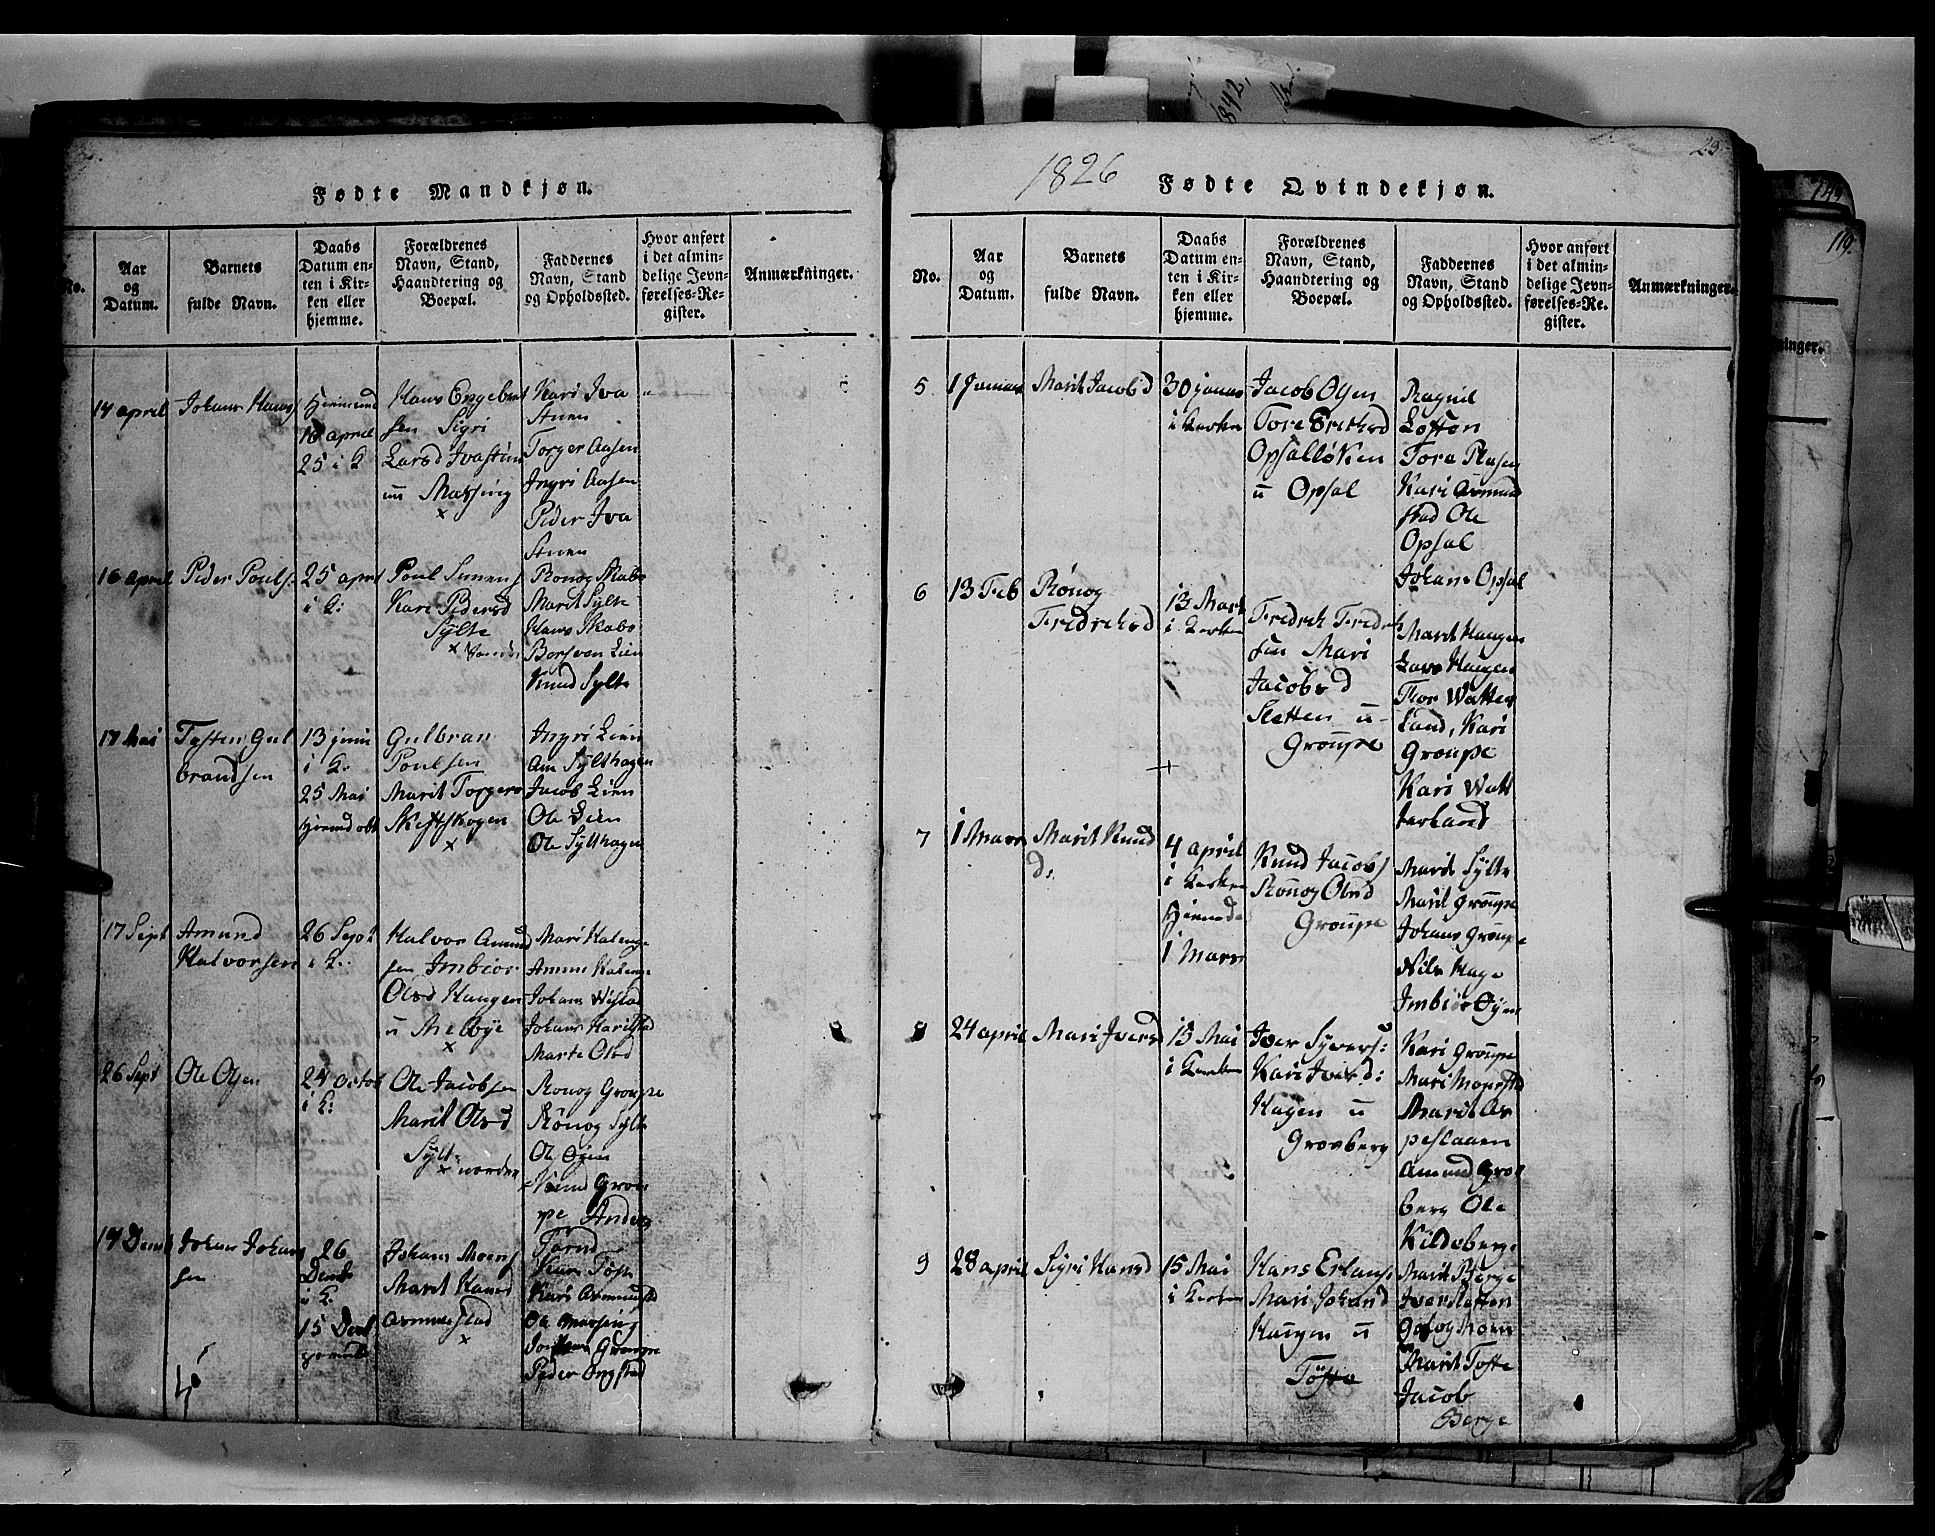 Fødte Mandkjøn.
No.
Aar
og
Datum.
Barnets
fulde Navn.
Daabs
Datum en-
ten i Kir-
ken eller
hjemme.
Forældrenes
Navn, Stand,
Haandtering og
Boepæl.
Faddernes
Navn, Stand
og Opholdssted.
Hvor anført
i det almin-
delige Jevn-
førelses-Re-
gister.
Anmærkninger.
14 april
Johans Hans
Hiemmd
16 april
25 i K
Hans Engebret
sen Sigri
Larsd Ivastuen
u Massing
Kari Iva
stuen
Torger Aasen
Ingri Aasen
Peder Iva
stuen
16 april
Peder Pouls:
25 april
i K:
Poul Simens
Kari Pedersd
Sylte
Ronog Skabo
Marit Sylte
Hans Skabo
Borsven Lien
Knud Sylte
17 Mai
Tosten Gul
brandsen
13 juni
i K:
25 Mai
Gulbran
Poulsen
Marit Torgers
Skiftskogen
Ingri Lien
Am Sylthagen
Jacob Lien
Ole Lien
Ole Sylthagen
17 Sept
Amund
Halvorsen
26 Sept
i K:
Halvor Amund
sen Imbior
Olsd Haugen
u Melbye
Mari
Johans
Johans Harilstad
Marte Olsd
26 Sept
Ole Olsen
24 octob
i K:
Ole Jacobsen
Marit Olsd
Sylt:
norden
Ronog Groupe
Rönog Sylte
Ole Öien
Knud Grou
pe Anders
14 Decemb
Johans Johans
sen
26
Decb
i K.
15 Decb
Johans Moens
Marit Hansd
Asmunstad
Hans Töfte
Kari Asmunstad
Ole Massing
Groupe
Peder Ongstad
1826
Fødte Qvindekjøn.
29
No.
Aar
og
Datum.
Barnets
fulde Navn.
Daabs
Datum en-
ten i Kir-
ken eller
hjemme.
Forældrenes
Navn, Stand,
Haandtering og
Boepæl.
Faddernes
Navn, Stand
og Opholdssted.
Hvor anført
i det almin-
delige Jevn-
førelses-Re-
gister.
Anmærkninger.
5
1 Januar
Marit Jacobsd
30 januar
i Kerken
Jacob Olsen
Tore Erichsd
Opsalløken
u Opsal
Ragnil
Loften
Tora Plasen
Kari Asmund
stad Ole
Opsal
Johans Opsal
6
13 Feb
Rönog
Fredrichsd
13 Mart
i Kerken
Fredrich Fredrich
sen Mari
Jacobsd
Sletten u
Groupe
Marit Haugen
Lars Haugen
Tor Watter
land, Kari
Groupe
Kari Watt
terland
7
1 Mars
Marit Knud
D:
4 april
i Kerken
Hiemmd
1 Mars
Knud Jacobs
Rönog Olsd
Groupe
Marit Sylte
Marit Groupe
Johans Groupe
Nils Hage
Imbiör Öyen
8
24 april
Mari Iversd
15 Mai
i Kerken
Iver Syvers:
Kari Iversd:
Hagen u
Grovberg
Kari Groupe
Mari
Marit As
peslaaen
Amund Grov
berg Ole
Kildeberg
9
28 april
Sigri Hansd
15 Mai
i Kerken
Hans Erlans:
Mari Johansd
Haugen u
Töfte
Marit Berge
Iver Sletten
Moen
Marit Tofte
Jacob
Berge
1842,
149
119.
ninger.